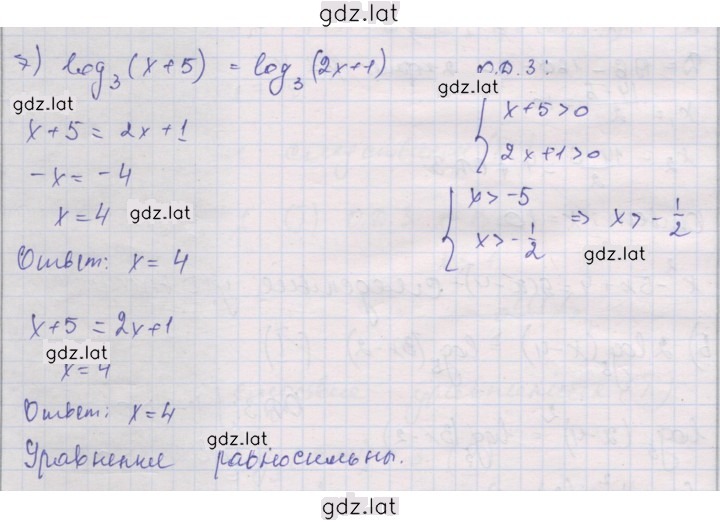 gdz.lat
7) log₃(x+5) = log₃(2x+1)
О.Д.З:
gdz.lat
gdz.lat
x+5>0
x+5 = 2x+1
2x+1>0
-x = -4
x>-5
x=4
gdz.lat
x>-1/2
⇒ x>-1/2
gdz.lat
Ответ: x=4
x+5 = 2x+1
gdz.lat
x=4
Ответ: x=4
gdz.lat
Уравнение равносильны.
gdz.lat